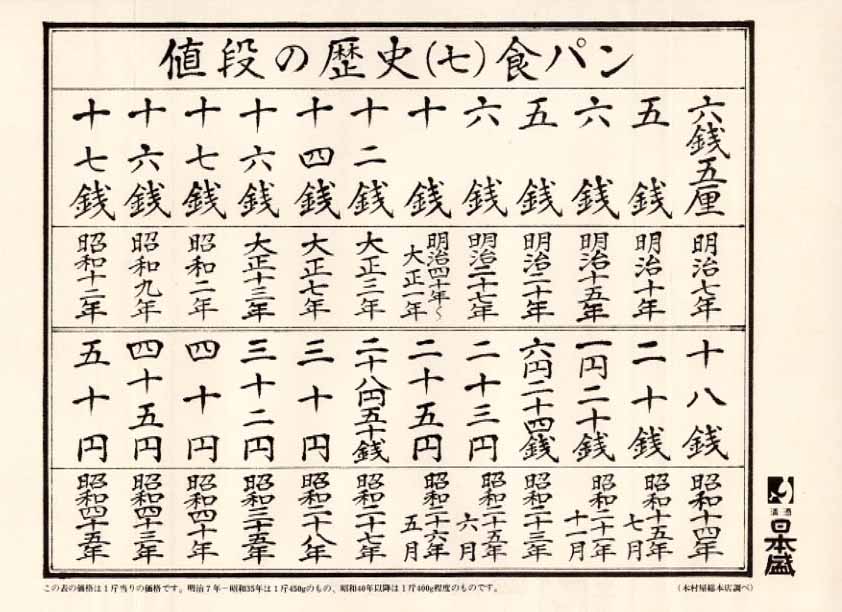 値段の歴史(七)食パン
六銭五厘
五銭
六銭
五銭
六銭
十銭
十二銭
十四銭
十六銭
十七銭
十六銭
十七銭
明治七年
明治十年
明治十五年
明治二十年
明治二十七年
明治四十年〜
大正一年
大正三年
大正七年
大正十三年
昭和二年
昭和九年
昭和十二年
十八銭
二十銭
一円二十銭
六円二十四銭
二十三円
二十五円
二十八円五十銭
三十円
三十二円
四十円
四十五円
五十円
昭和十四年
昭和十五年
七月
昭和二十一年
十一月
昭和二十三年
昭和二十五年
六月
昭和二十六年
五月
昭和二十七年
昭和二十八年
昭和三十五年
昭和四十年
昭和四十三年
昭和四十五年
清酒
日本盛
この表の価格は1斤当りの価格です。明治7年−昭和35年は1斤450gのもの、昭和40年以降は1斤400g程度のものです。
(木村屋総本店調べ)